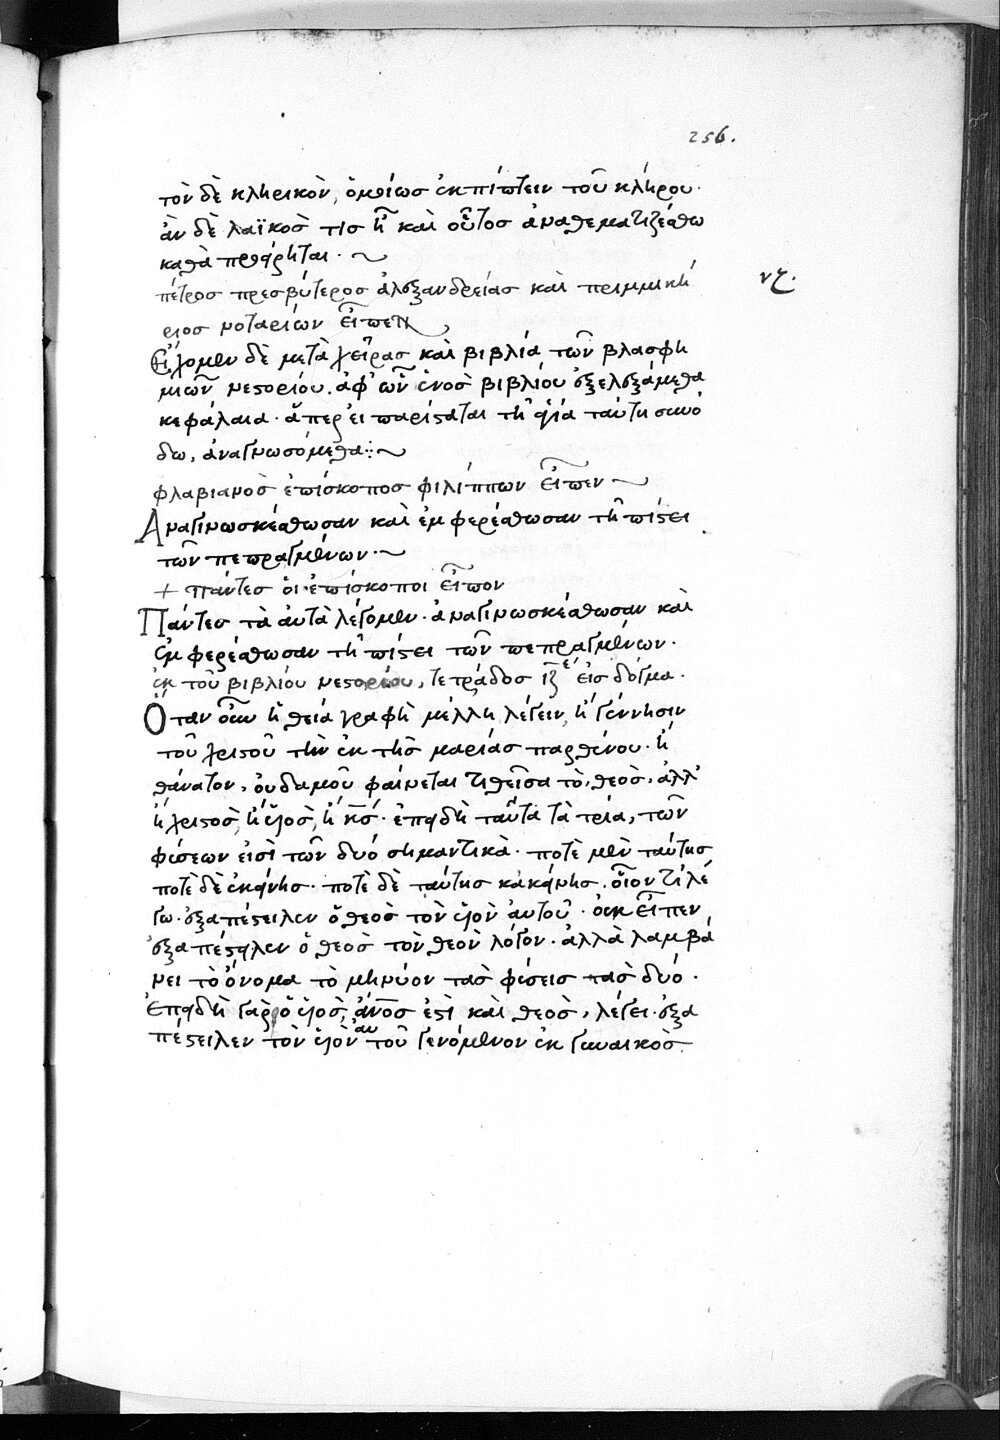 256.
τὸν δὲ κληρικὸν, ὁμοίωσ ἐκπίπτειν τοῦ κλήρου·
ἀν δὲ λαϊκὸσ τισ ἢ καὶ οὗτοσ ἀναθεματιζέσθω
καθὰ προείρηται·
πέτροσ πρεσβύτεροσ ἀλεξανδρείασ καὶ πριμμική
ριοσ νοταρίων εἶπεν
νζ.
Εἴχομεν δὲ μετὰ χεῖρασ καὶ βιβλία τῶν βλασφη
μιῶν νεστορίου. ἀφ' ὧν ἑνὸσ βιβλίου ἐξελεξάμεθα
κεφάλαια· ἅπερ εἰ παρίσταται τῇ ἁγία ταύτη συνό
δω, ἀναγνωσόμεθα:
φλαβιανὸσ ἐπίσκοποσ φιλίππων εἶπεν
Ἀναγινωσκέσθωσαν καὶ ἐμφερέσθωσαν τῇ πίστει
τῶν πεπραγμένων·
+ πάντεσ ὁι ἐπίσκοποι εἶπον
Πάντεσ τὰ ἀυτὰ λέγομεν· ἀναγινωσκέσθωσαν καὶ
ἐμφερέσθωσαν τῇ πίστει τῶν πεπραγμένων·
ἐκ τοῦ βιβλίου νεστορίου, τετράδοσ ιζ εἰσ δόγμα·
Ὅταν οὖν ἡ θεία γραφὴ μέλλη λέγειν, ἢ γέννησιν
τοῦ χριστοῦ τὴν ἐκ τῆσ μαρίασ παρθένου· ἢ
θάνατον, ὀυδαμοῦ φαίνεται τιθεῖσα τὸ, θεὸσ, ἀλλ'
ἢ χριστὸσ, ἢ ὑιὸσ, ἢ κσ· ἐπειδὴ ταῦτα τὰ τρία, τῶν
φύσεων εἰσὶ τῶν δυό σημαντικὰ· ποτὲ μὲν ταύτησ
ποτὲ δὲ ἐκείνησ· ποτὲ δὲ ταύτησ κἀκείνησ. οἷον τί λέ
γω· ἐξαπέστειλεν ὁ θεὸσ τὸν ὑιὸν ἀυτοῦ· ὀυκ εἶπεν
ἐξαπέστειλεν ὁ θεὸσ τὸν θεὸν λόγον· ἀλλὰ λαμβά
νει τὸ ὄνομα τὸ μηνύον τασ φύσεισ τασ δυό·
Ἐπειδὴ γὰρ ὁ ὑιὸσ, ἄνοσ ἐστὶ καὶ θεὸσ, λέγει· ἐξα
πέστειλεν τὸν ὑιὸν αυτοῦ γενόμενον ἐκ γυναικὸσ